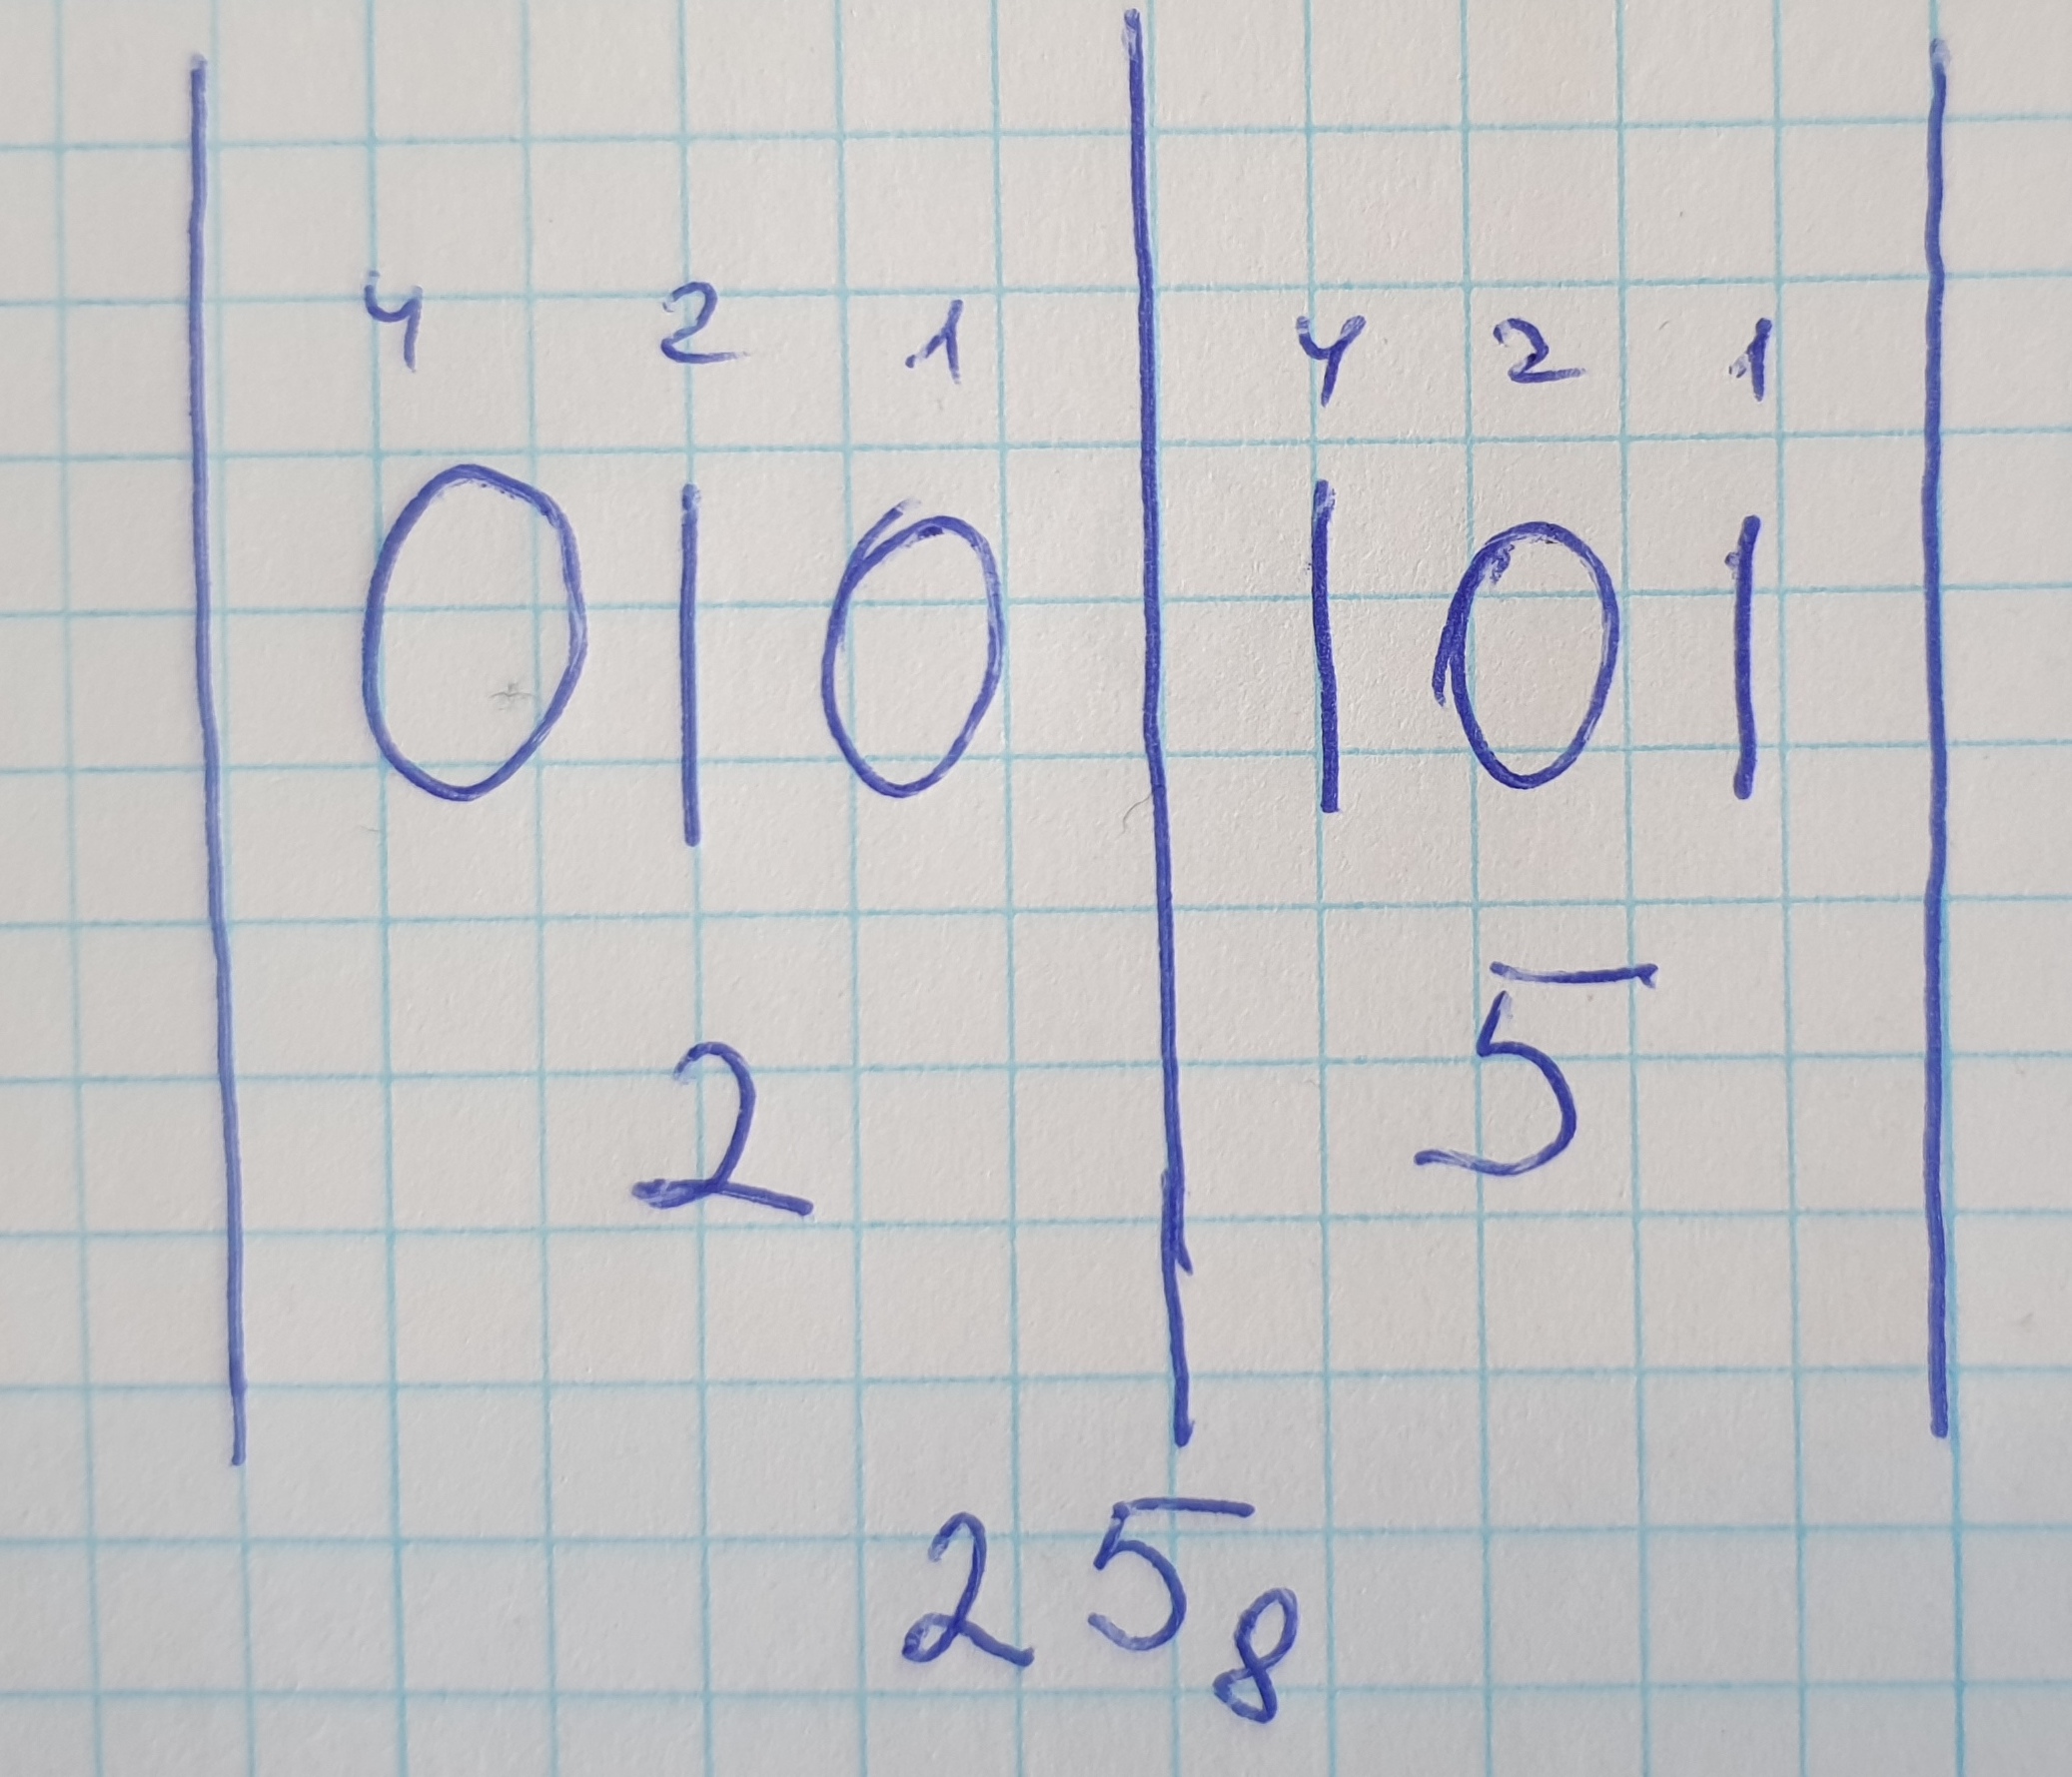 4 2 1 4 2 1
010 101
2 5
25₈